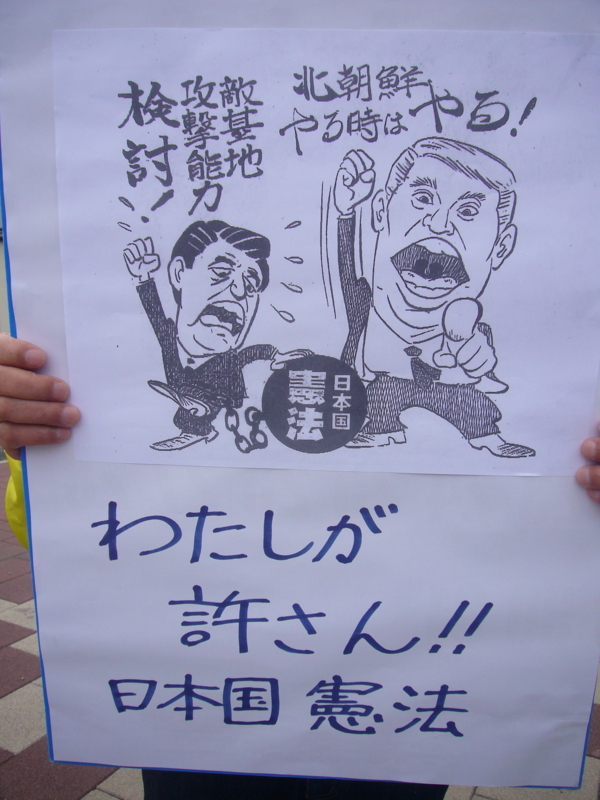 北朝鮮
やる時はやる!
敵基地
攻撃能力
検討!!
日本国
憲法
わたしが
許さん!!
日本国 憲法